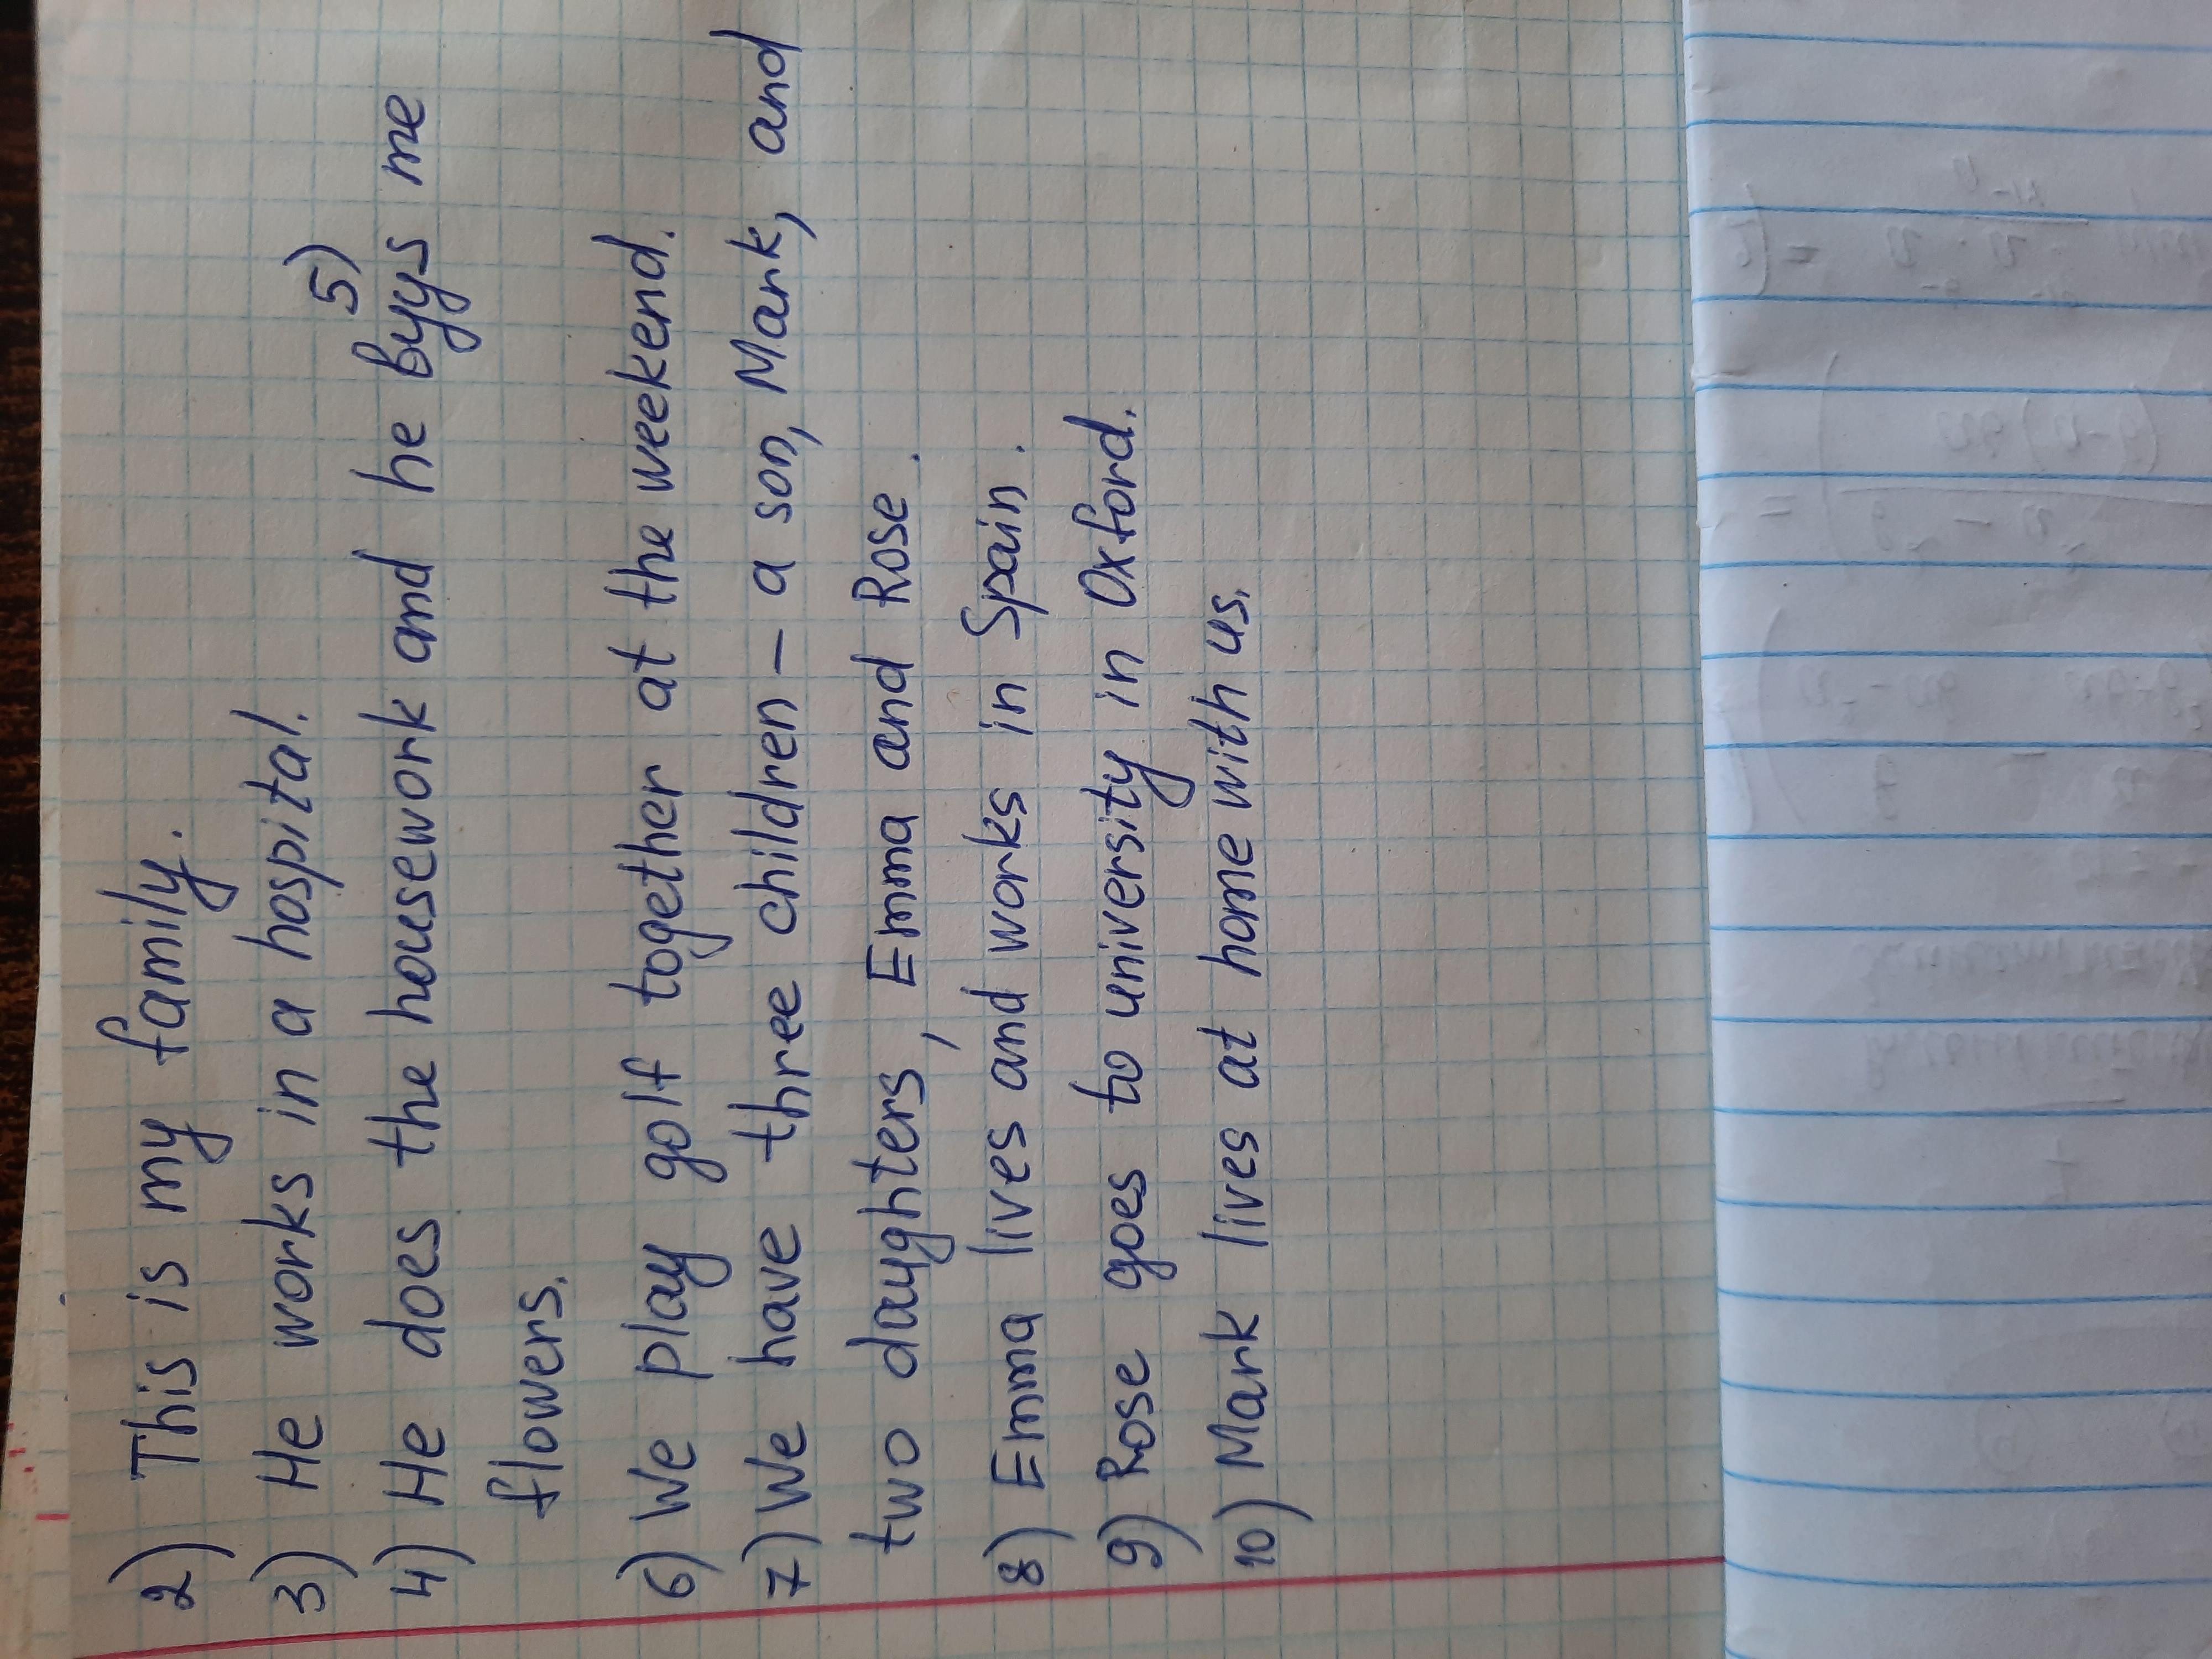 2) This is my family.
3) He works in a hospital.
5)
4) He does the housework and he byys me
flowers.
6) We play golf together at the weekend.
7) We have three children – a son, Mark, and
two dayghters, Emma and Rose.
8) Emma lives and works in Spain.
9) Rose goes to university in Oxford.
10) Mark lives at home with us.